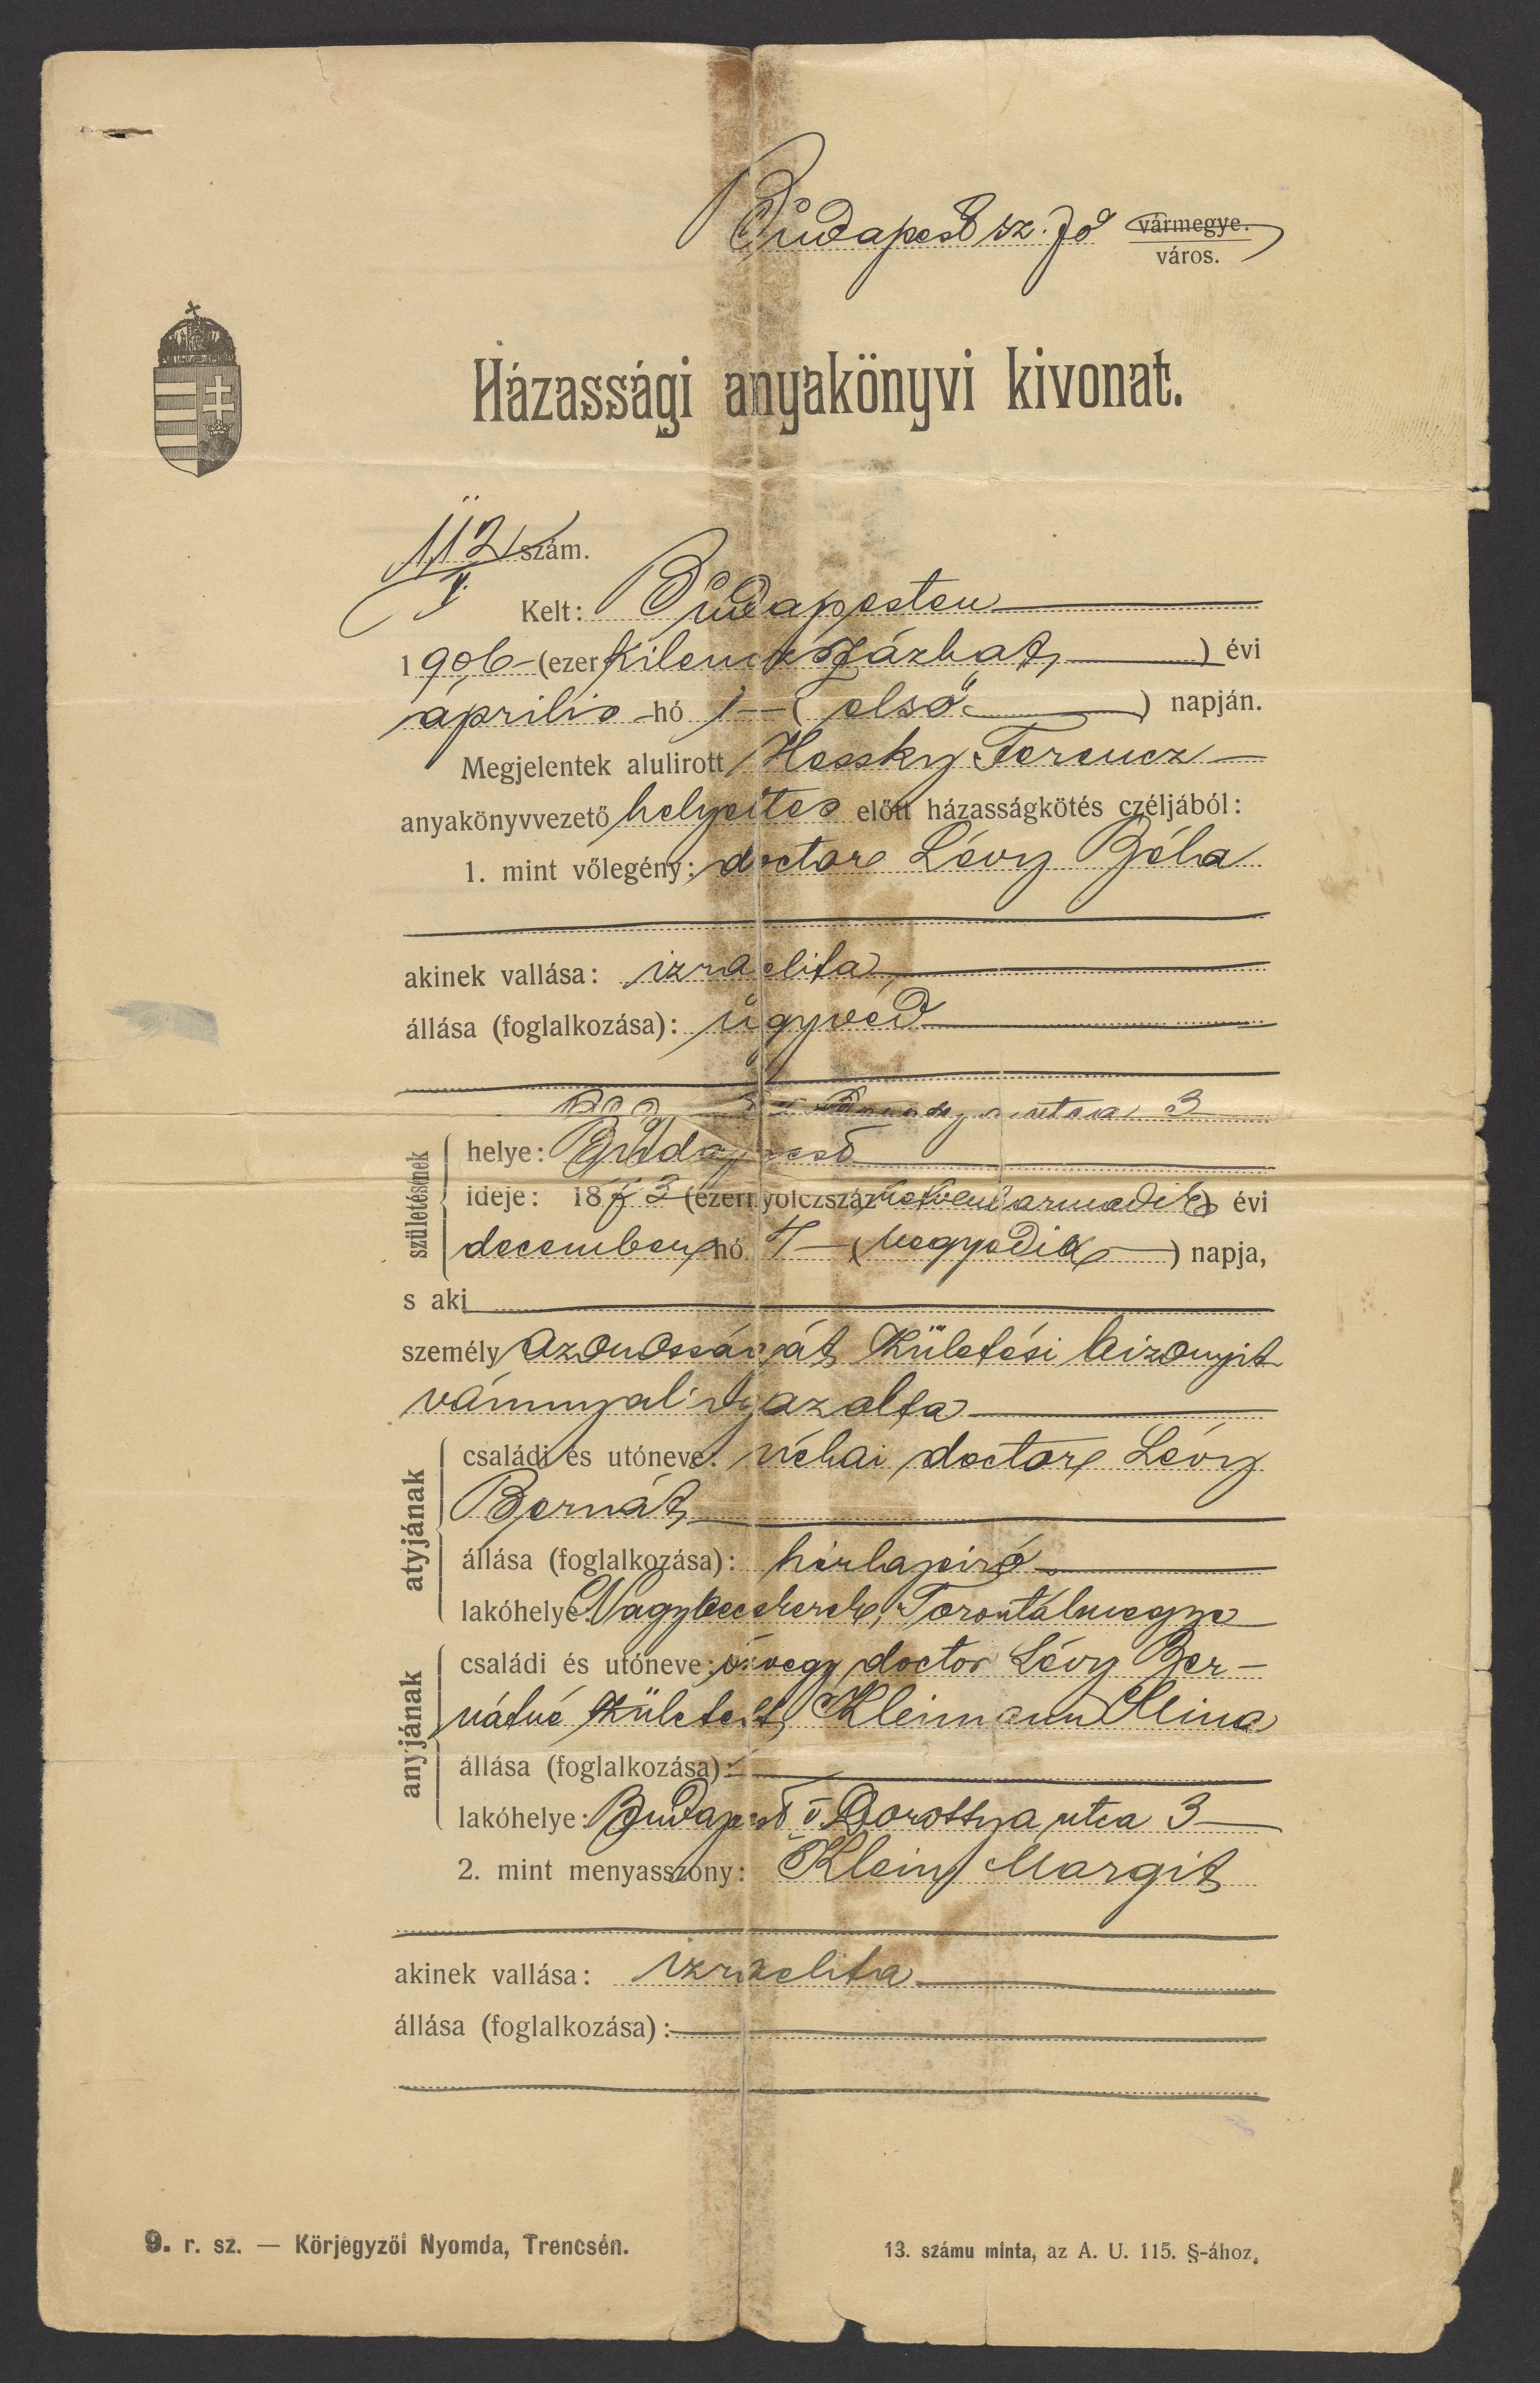 Budapest sz. fő vármegye.
város.
Házassági anyakönyvi kivonat.
112 szám.
Kelt: Budapesten
1906 (ezerkilenczszázhat) évi
április hó 1 (első) napján.
Megjelentek alulirott Hessky Ferencz
anyakönyvvezető helyettes előtt házasságkötés czéljából:
1. mint vőlegény: doctor Lévy Béla
akinek vallása: izraelita
állása (foglalkozása): ügyvéd
utca 3
születésének
helye: Budapest
ideje: 1873 (ezernyolczszázhetvenharmadik) évi
december hó 4 (negyedik) napja,
s aki
személyazonosságát születési bizonyit
vánnyal igazolta
atyjának
családi és utóneve: néhai doctor Lévy
Bernát
állása (foglalkozása): hirlapiró
lakóhelye: Nagybecskerek, Torontálmegye
anyjának
családi és utóneve: özvegy doctor Lévy Ber-
nátné született Kleimann Mina
állása (foglalkozása):
lakóhelye: Budapest V Dorottya utca 3
2. mint menyasszony: Klein Margit
akinek vallása: izraelita
állása (foglalkozása):
9. r. sz. — Körjegyzői Nyomda, Trencsén.
13. számu minta, az A. U. 115. §-ához.